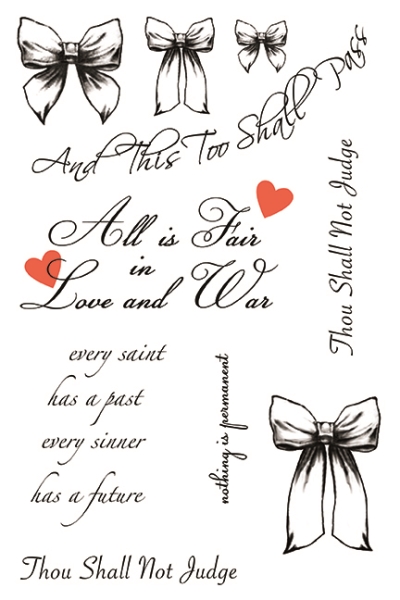 And This Too Shall Pass
All is Fair
in
Love and War
Thou Shall Not Judge
every saint
has a past
every sinner
has a future
nothing is permanent
Thou Shall Not Judge